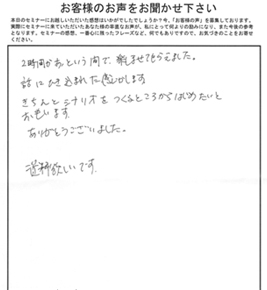 お客様のお声をお聞かせ下さい
本日のセミナーにお越しいただいた感想はいかがでしたでしょうか？今、「お客様の声」を募集しております。
実際にセミナーに来ていただいたあなた様の率直なお声が、私にとって何よりの励みになり、また今後の参考
となります。セミナーの感想、一番心に残ったフレーズなど、何でもありですので、お気づきのことをお寄せ
ください。
2時間があっという間で、
話にひき込まれた感じがします
きちんとシナリオをつくるところからはじめたいと
思います。
ありがとうございました。
資料欲しいです。